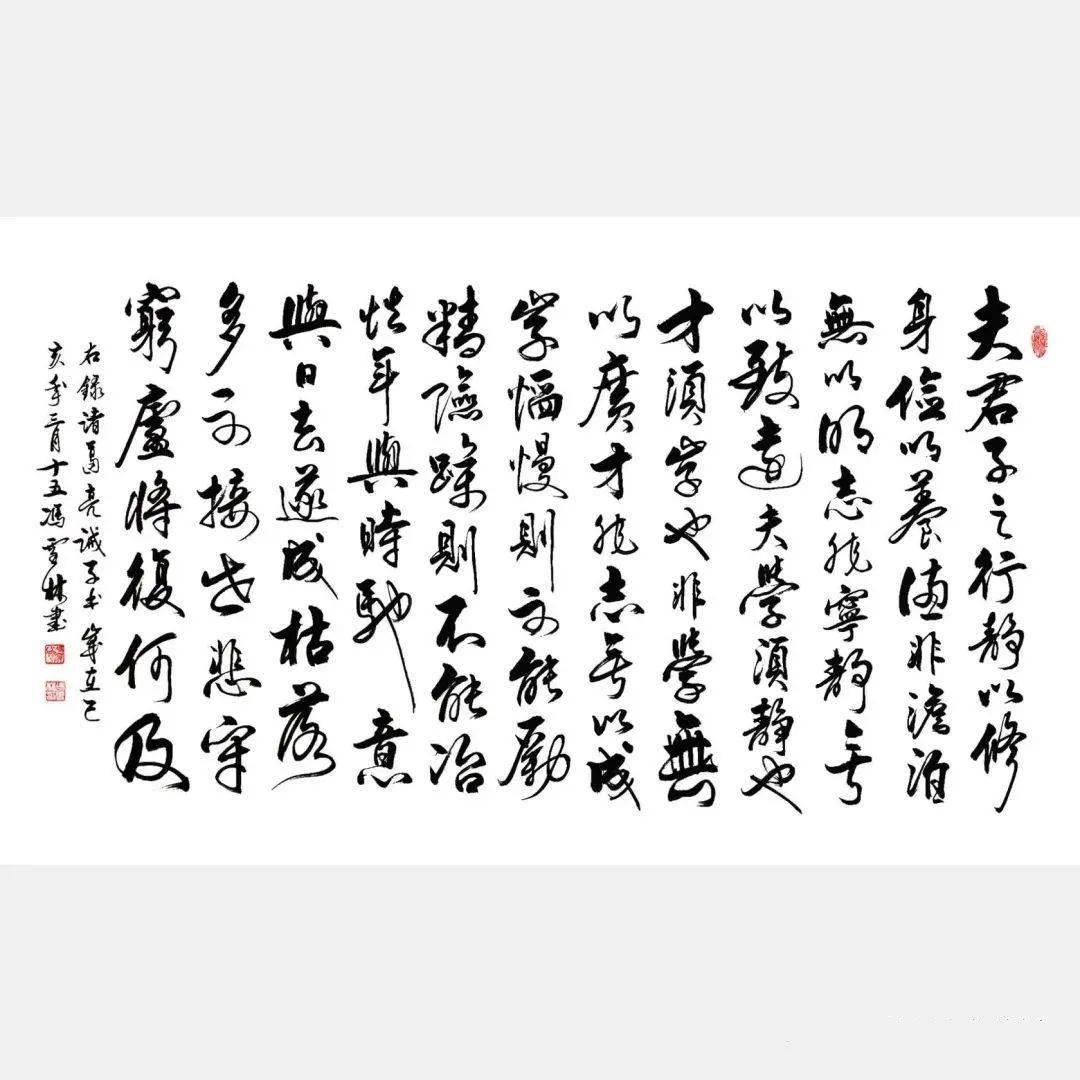 夫君子之行静以修
身儉以養德非澹泊
無以明志非寧静无
以致遠夫學須静也
才須学也非學無
以廣才非志无以成
学慆慢則不能勵
精險躁則不能冶
性年與時馳意
與日去遂成枯落
多不接世悲守
窮廬將復何及
右録诸葛亮誡子书歲在己
亥年三月十五馮雪林書